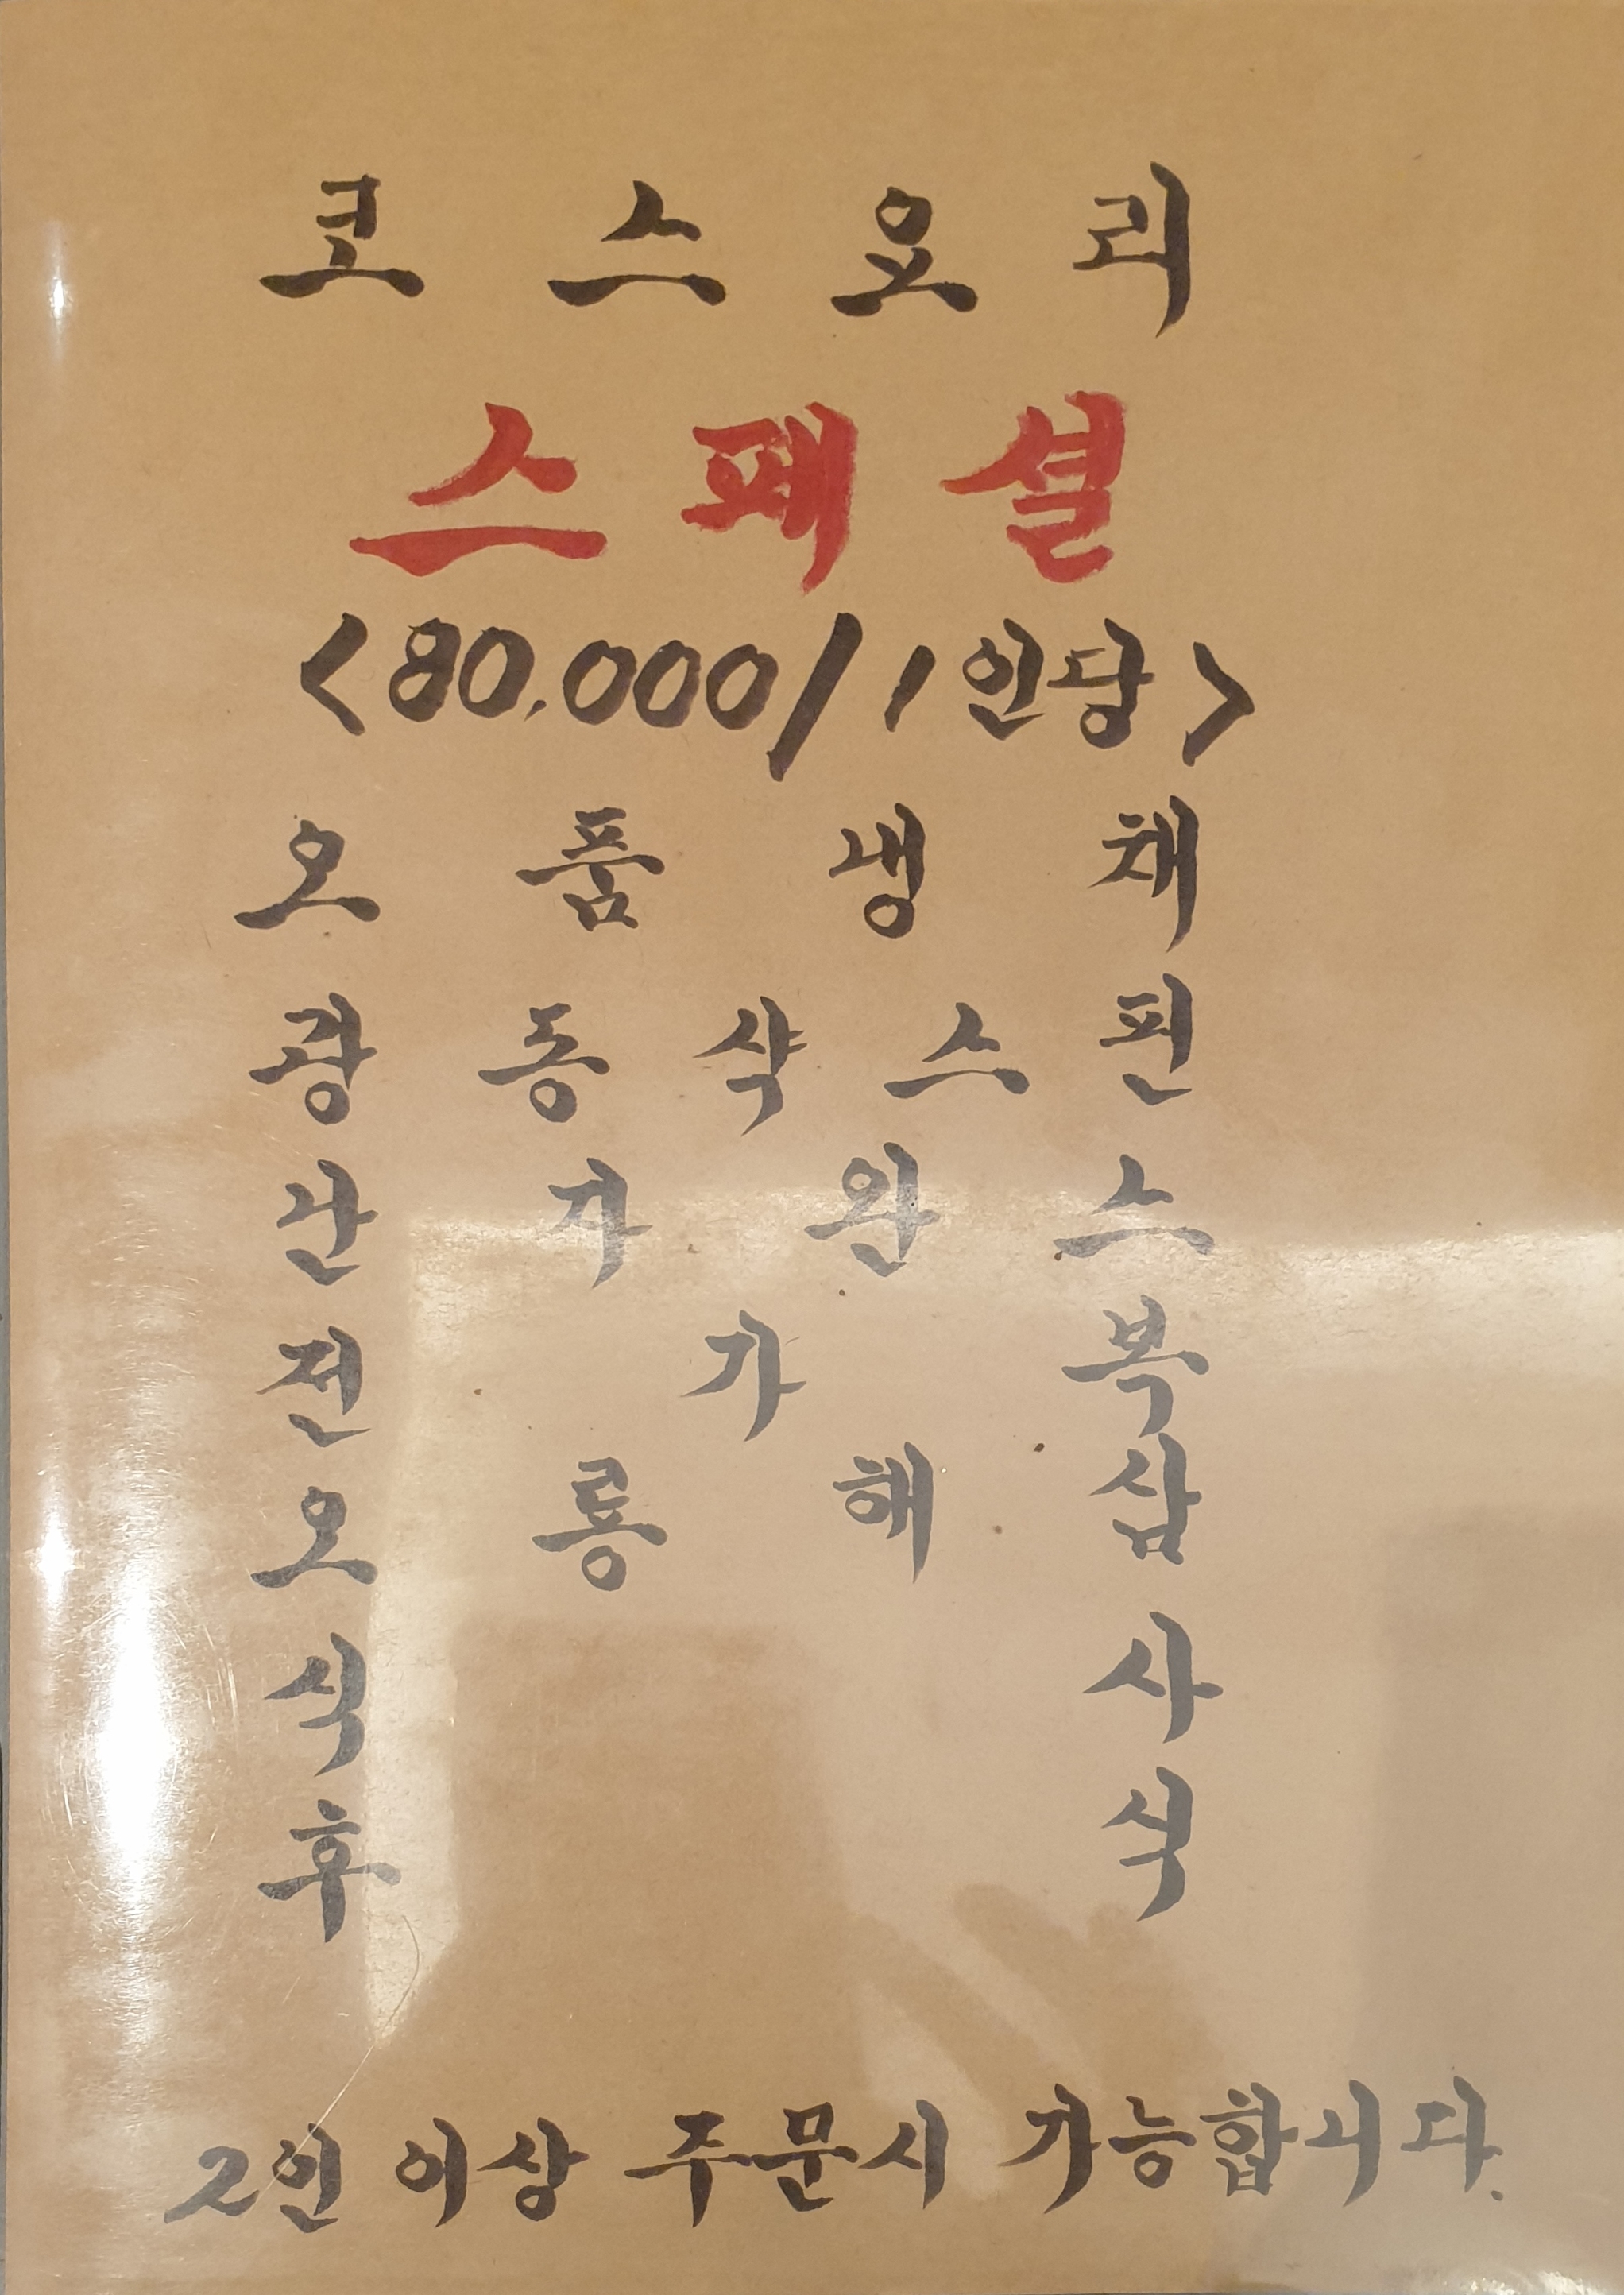 코스요리
스페셜
<80,000/1인당>
오품냉채
광동샥스핀
난자완스
전가복
오룡해삼
식사
후식
2인 이상 주문시 가능합니다.